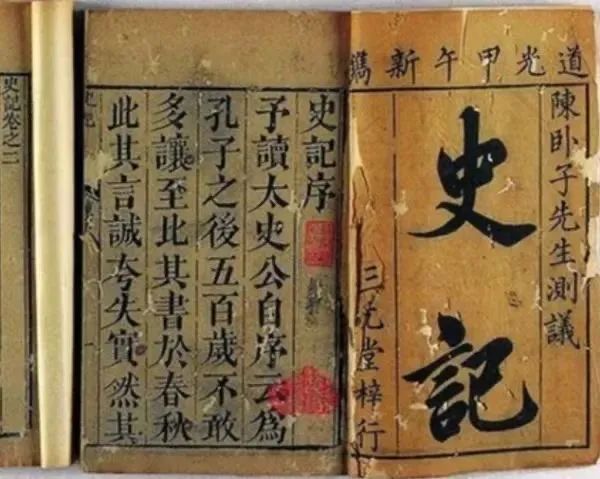 道光甲午新鐫
陳卧子先生測議
史記
三元堂梓行
史記序
予讀太史公自序云為
孔子之後五百歲不敢
多讓至此其書於春秋
此其言誠夸失實然其
史記
史記卷之二